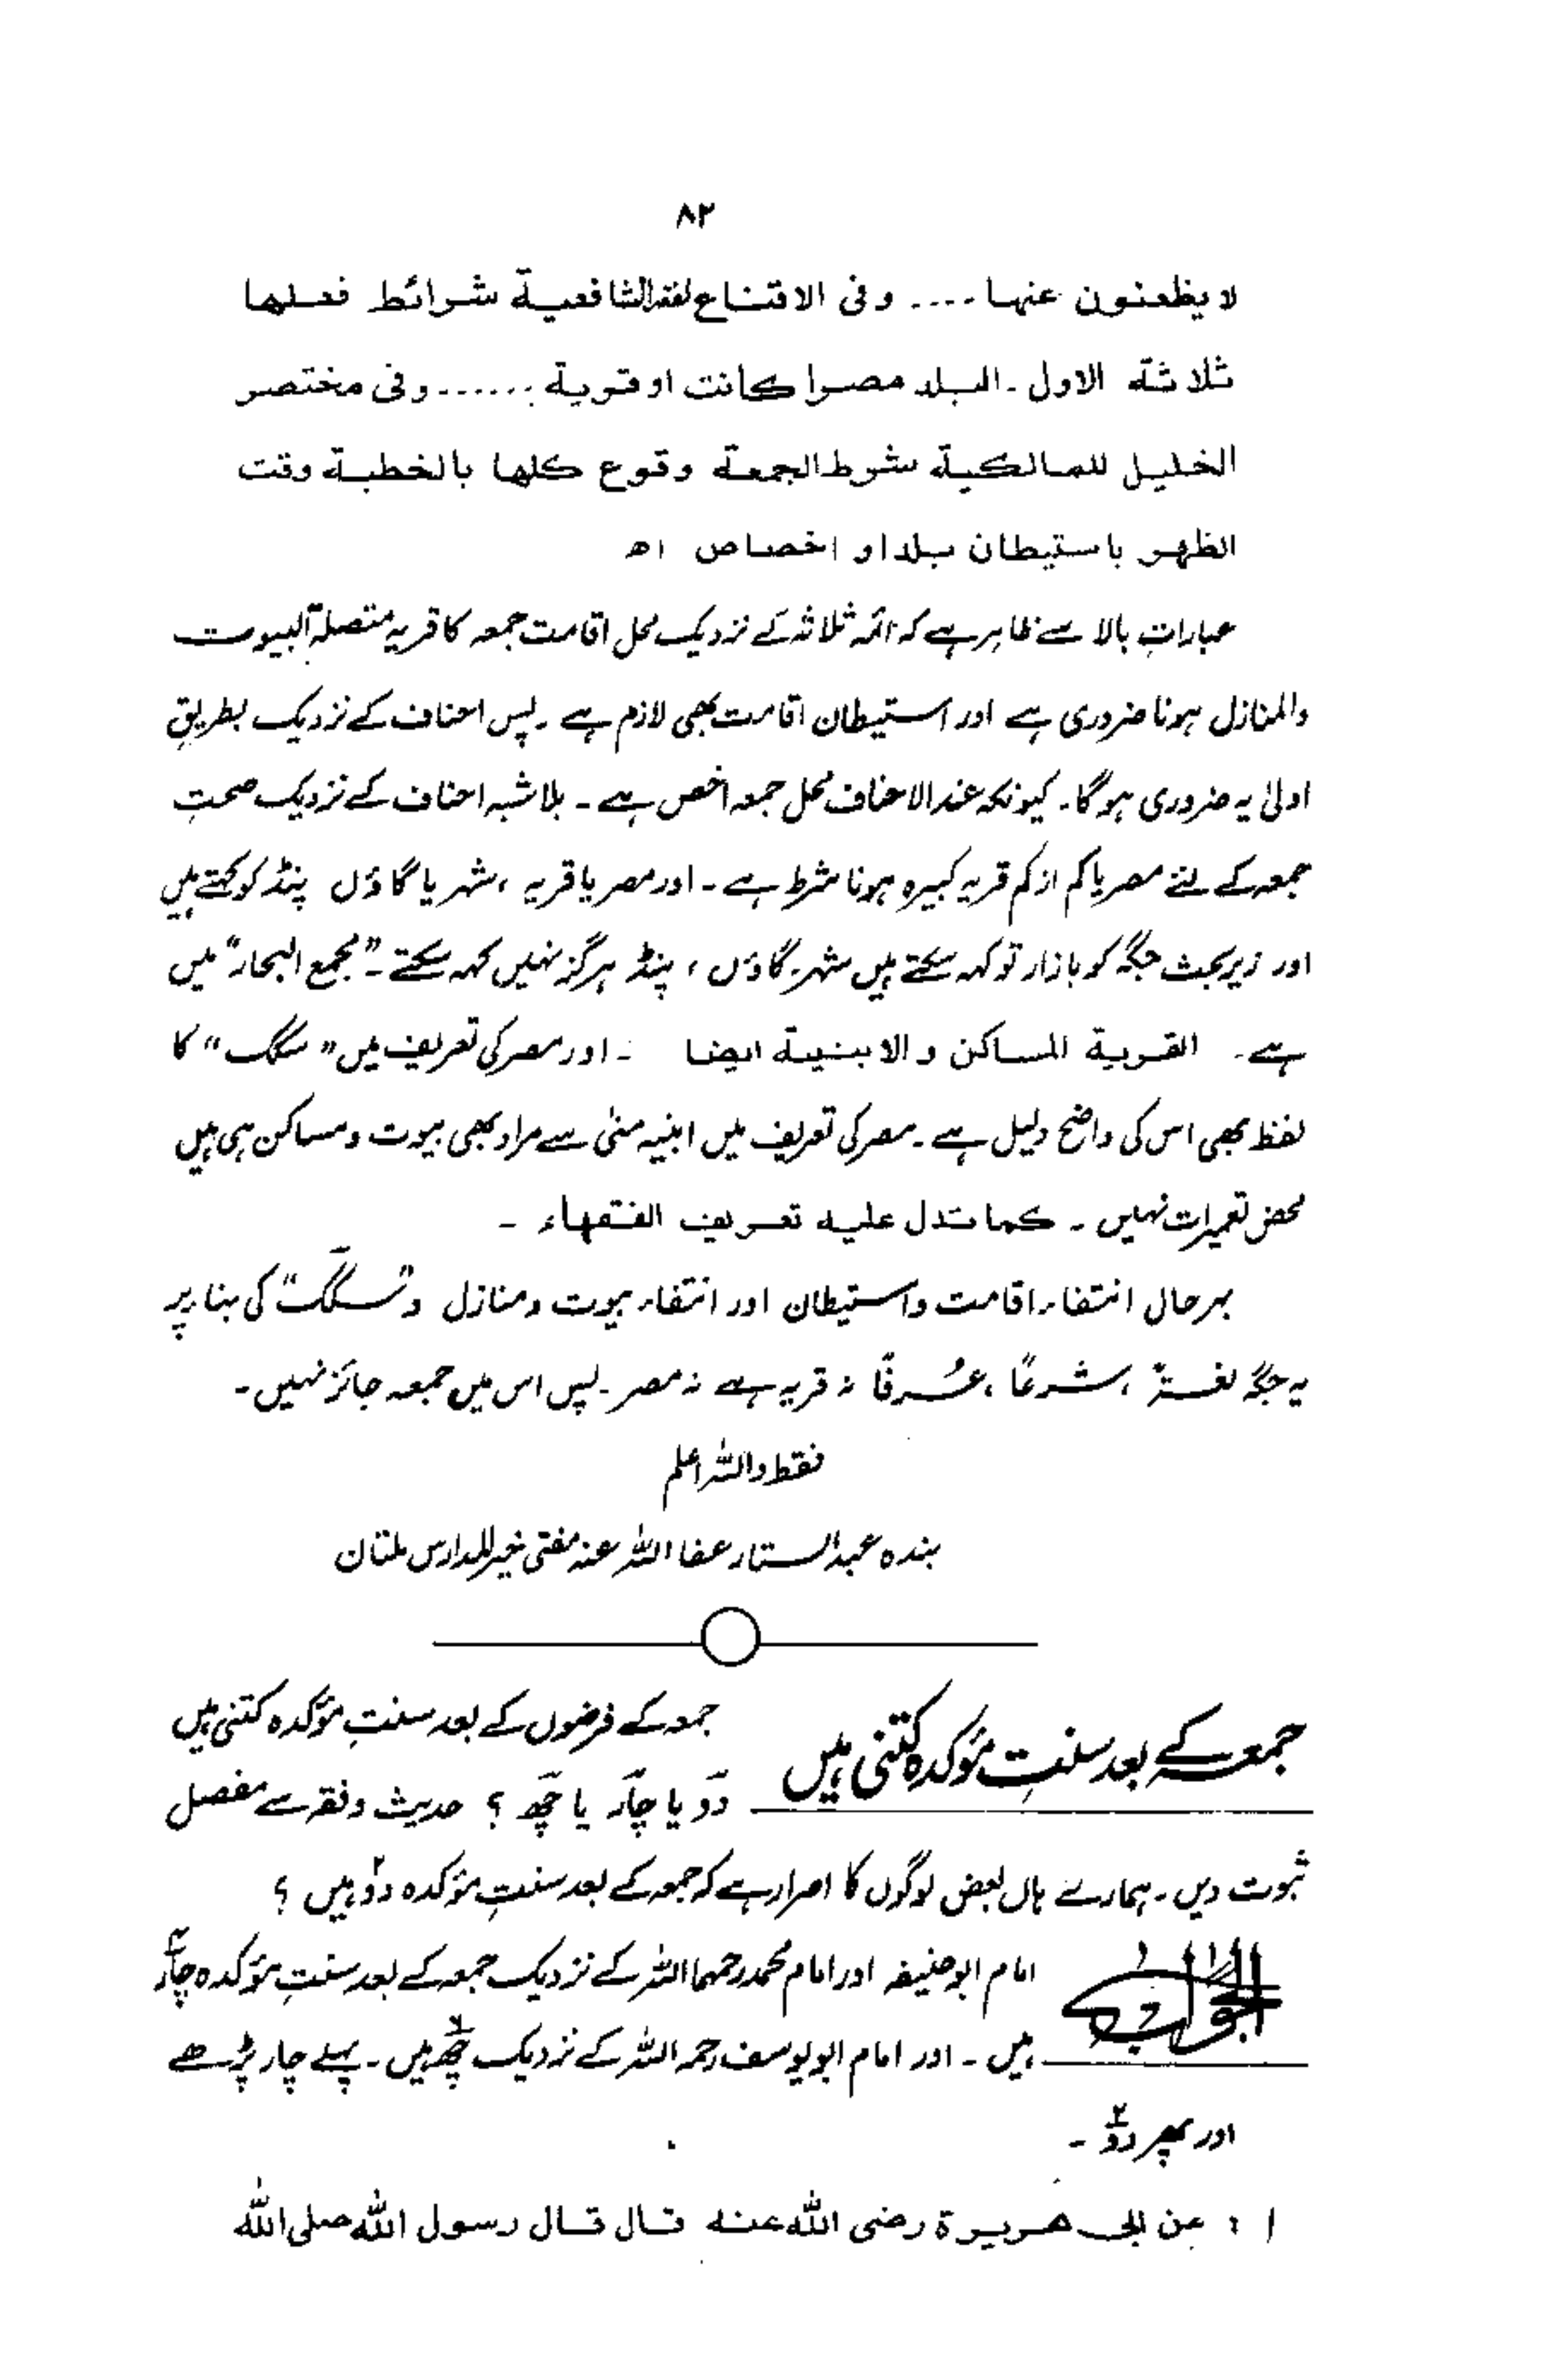 ۸۲
لا یظعنون عنها .... وفی الاقتناع لفقه الشافعیة شرائط فعلها
ثلاثة الاول ـ البلد مصرا کانت او قریة ...... وفی مختصر
الخلیل للمالکیة شرط الجمعة وقوع کلها بالخطبة وقت
الظهر باستیطان بلد او اخصاص اھ
عباراتِ بالا سے ظاہر ہے کہ ائمہ ثلاثہ کے نزدیک محل اقامت جمعہ کا قریہ متصلۃ البیوت
والمنازل ہونا ضروری ہے اور استیطان اقامت بھی لازم ہے ۔ پس احناف کے نزدیک بطریقِ
اولیٰ یہ ضروری ہو گا۔ کیونکہ عند الاحناف محل جمعہ اخص ہے ۔ بلا شبہ احناف کے نزدیک صحتِ
جمعہ کے لئے مصر یا کم از کم قریہ کبیرہ ہونا شرط ہے ۔ اور مصر یا قریہ ، شہر یا گاؤں پنڈ کو کہتے ہیں
اور زیر بحث جگہ کو بازار تو کہہ سکتے ہیں شہر ۔ گاؤں ، پنڈ ہرگز نہیں کہہ سکتے ۔ ”مجمع البحار“ میں
ہے ۔ القریة المساکن والابنیة ایضا ۔ اور مصر کی تعریف میں ”سکک“ کا
لفظ بھی اس کی واضح دلیل ہے ۔ مصر کی تعریف میں ابنیہ منیٰ سے مراد بھی بیوت و مساکن ہی ہیں
محض تعمیرات نہیں ۔ کما تدل علیه تعریف الفقهاء ۔
بہر حال انتفاء اقامت و استیطان اور انتفاء بیوت و منازل و ”سکک“ کی بنا پر
یہ جگہ لغۃً ، شرعًا ، عُرفًا نہ قریہ ہے نہ مصر ۔ پس اس میں جمعہ جائز نہیں ۔
فقط واللہ اعلم
بندہ عبد الستار عفا اللہ عنہ مفتی خیر المدارس ملتان
جمعہ کے بعد سنتِ مؤکدہ کتنی ہیں
جمعہ کے فرضوں کے بعد سنتِ مؤکدہ کتنی ہیں
دو یا چار یا چھ ؟ حدیث و فقہ سے مفصل
ثبوت دیں ۔ ہمارے ہاں بعض لوگوں کا اصرار ہے کہ جمعہ کے بعد سنتِ مؤکدہ دو ہیں ؟
الجواب
امام ابو حنیفہ اور امام محمد رحمہما اللہ کے نزدیک جمعہ کے بعد سنتِ مؤکدہ چار
ہیں ۔ اور امام ابو یوسف رحمہ اللہ کے نزدیک چھ ہیں ۔ پہلے چار پڑھے
اور پھر دو ۔
۱ : عن ابی هریرة رضی الله عنه قال قال رسول الله صلی الله